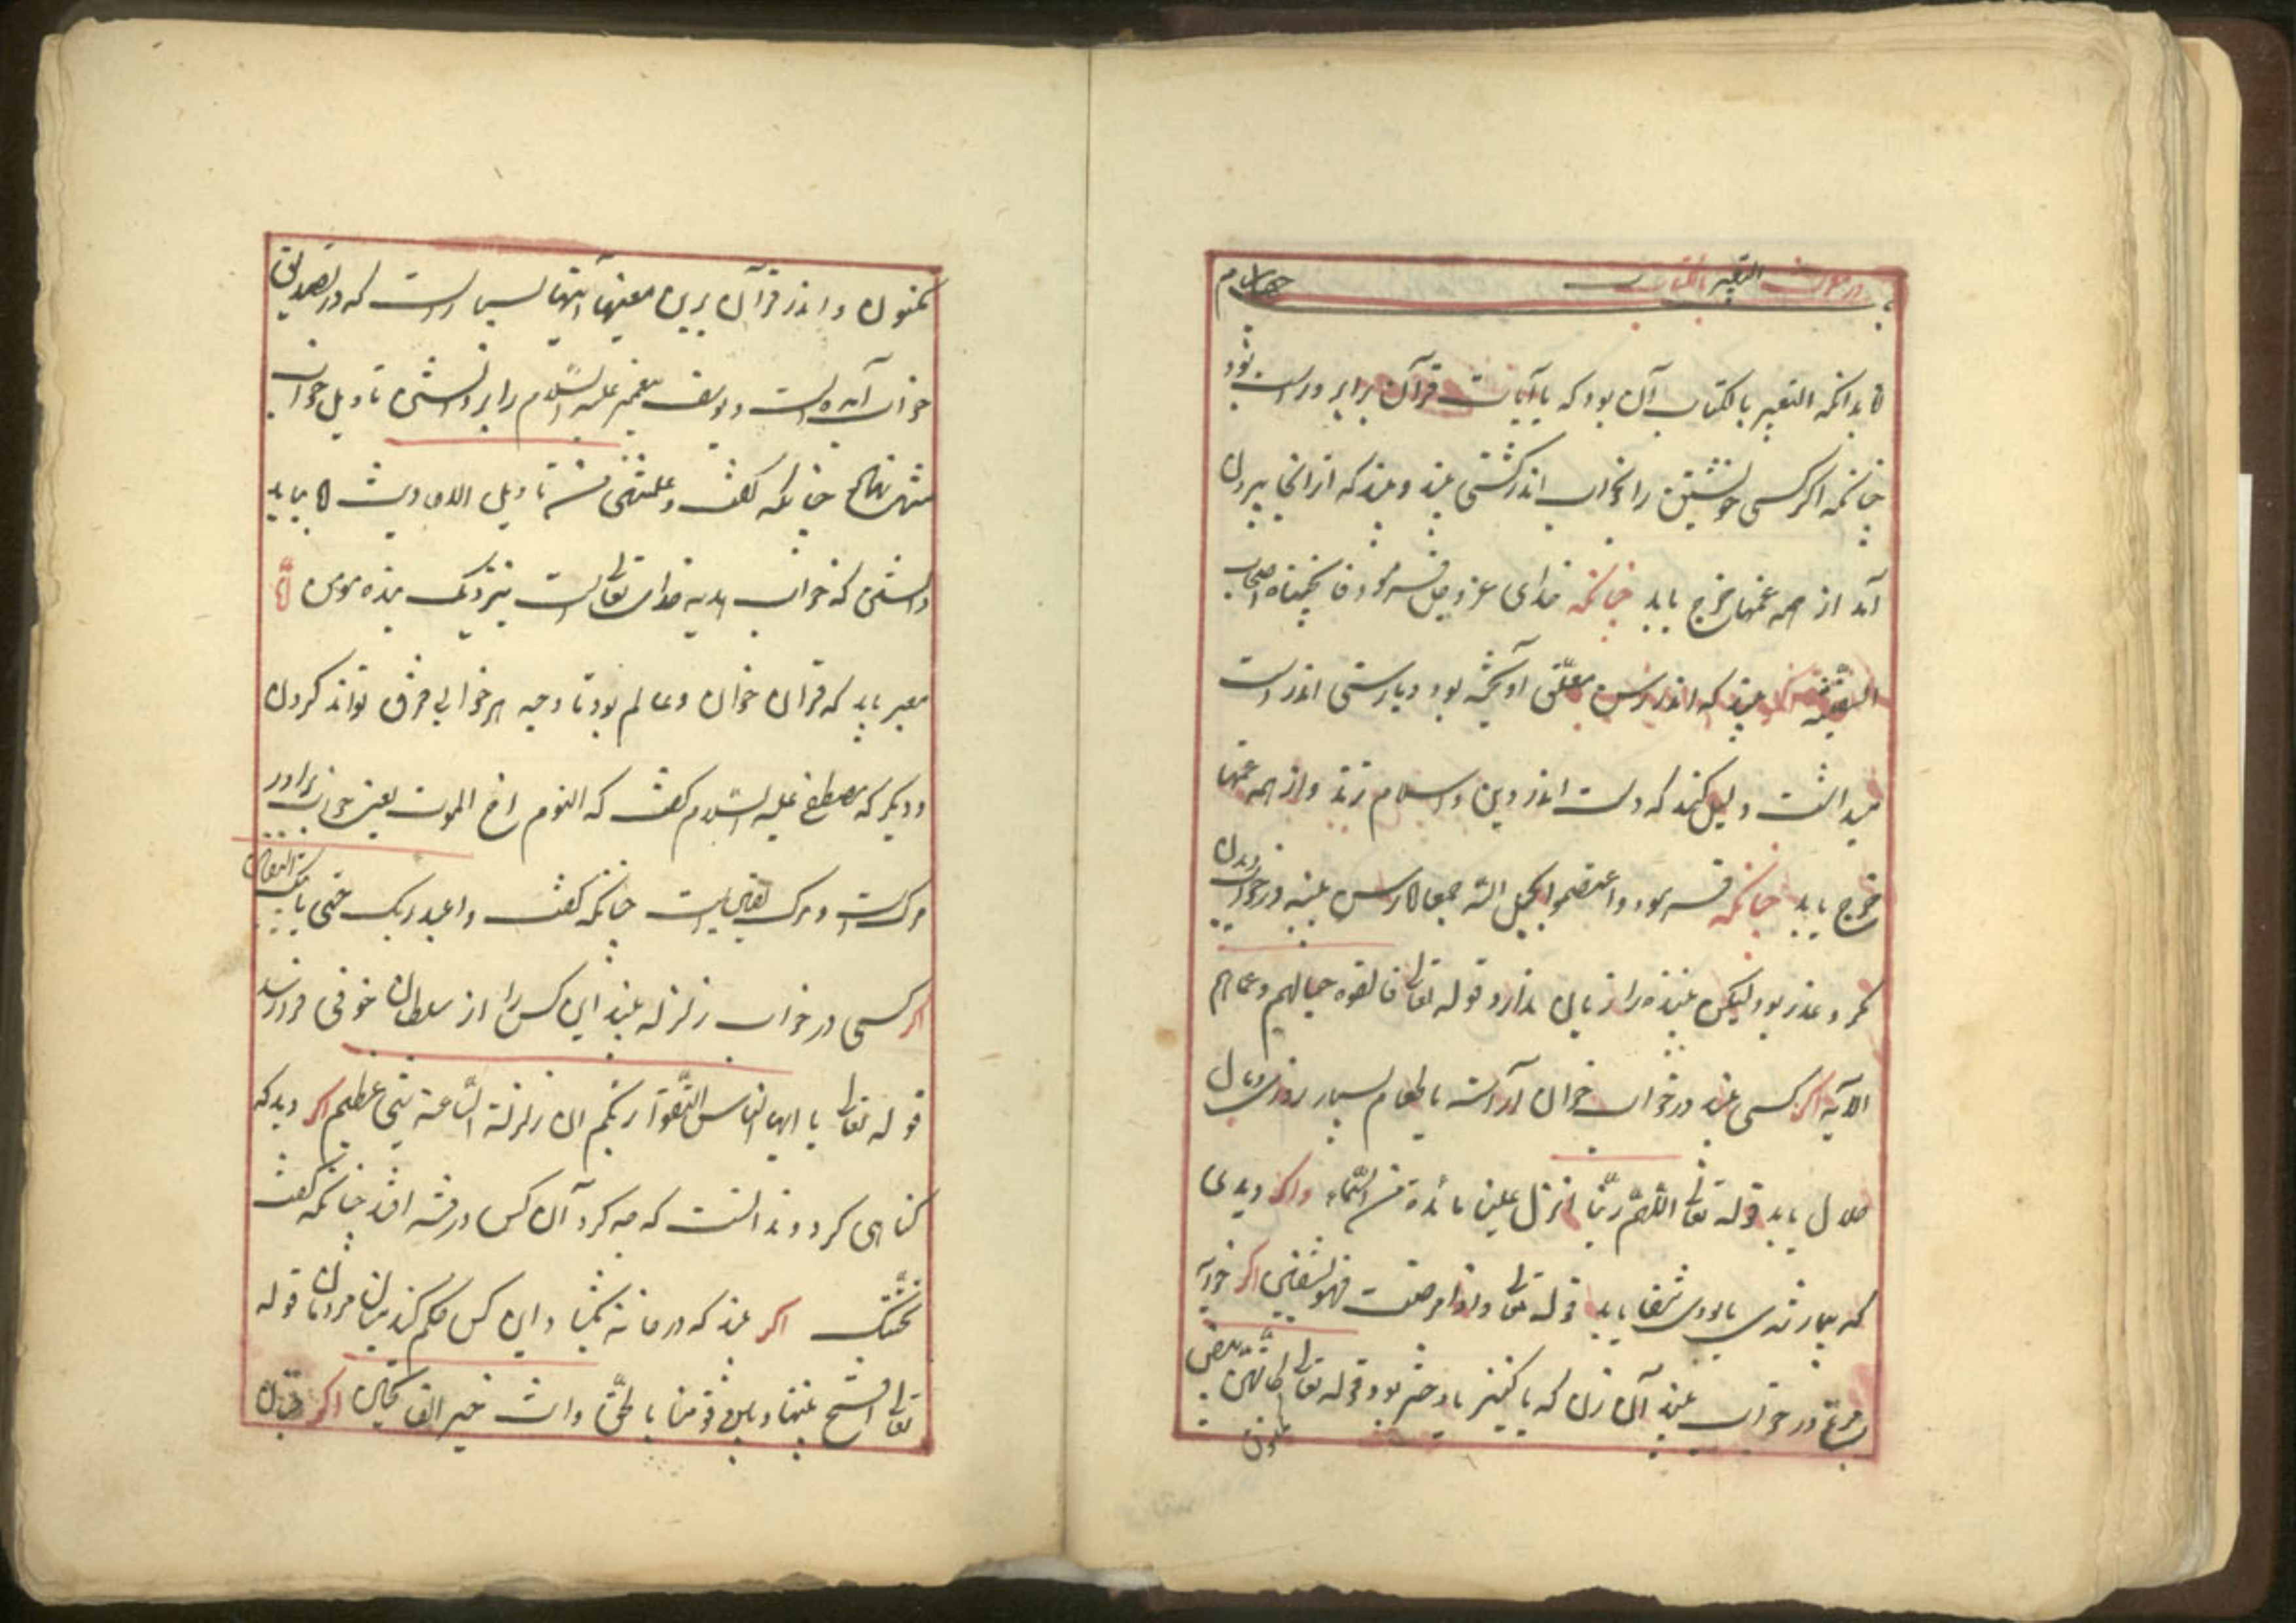 در معرفت التعبیر بالکتاب چهارم
بدانکه التعبیر بالکتاب آن بود که با آیات قرآن برابر و راست شود
چنانکه اگر کسی خویشتن را بخواب اندر کشتی بیند و بیند که از آنجا بیرون
آمد از همه غمها فرج یابد چنانکه خدای عز و جل فرمود فانجیناه و اصحاب
السفینه بیند که اندر رسن معلق آویخته بود و یا رستی اندر دست
میداشت دلیل کند که دست اندر دین و اسلام زند و از همه غمها
فرج یابد چنانکه فرمود واعتصموا بحبل الله جمیعا رسن بیند در خواب دیدن
مکر و غدر بود لیکن بیننده را زیان ندارد قوله تعالی فالقوه حبالهم وعصیهم
الآیه اگر کسی بیند در خواب خوان آراسته با طعام بسیار روزی و مال
حلال یابد قوله تعالی اللهم ربنا انزل علینا مائدة من السماء واگر دیدی
که بیمار شدی یا بودی شفا یابد قوله تعالی واذا مرضت فهو یشفین اگر خوابه
مرغ در خواب بیند آن زن که با کنیز یا دختر بود قوله تعالی کانهن بیض
مکنون
مکنون و اندر قرآن برین معنیها آیتها بسیار است که در تصدیق
خواب آمده است و یوسف پیغمبر علیه السلام را بر دانستن تاویل خواب
منت نهاد چنانکه گفت وعلمتنی من تاویل الاحادیث بباید
دانستن که خواب هدیه خدای تعالی است بنزدیک بنده مومن امّا
معبر باید که قرآن خوان و عالم بود تا وجیه هر خوابی فرق تواند کردن
و دیگر که مصطفی علیه السلام گفت که النوم اخ الموت یعنی خواب برادر
مرگ است و مرگ یقین است چنانکه گفت واعبد ربک حتی یاتیک الیقین
اگر کسی در خواب زلزله بیند این کس را از سلطان خوفی فرو رسد
قوله تعالی یا ایها الناس اتقوا ربکم ان زلزلة الساعة شیء عظیم اگر دید که
گناهی کرد و ندانست که چه کرد آن کس در فتنه افتد چنانکه گفت
اگر بیند که در خانه بگشاد این کس حکم کند میان مردمان قوله
تعالی افتح بیننا وبین قومنا بالحق وانت خیر الفاتحین اگر چنان